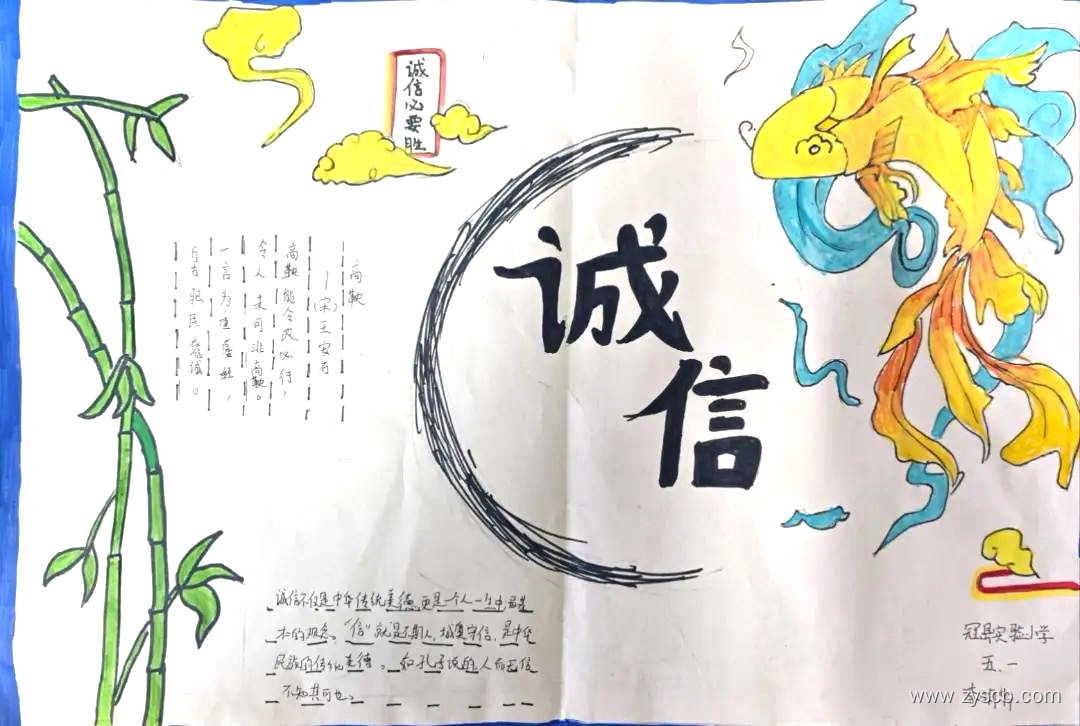 诚信必要胜
诚信
商鞅
—(宋)王安石
自古驱民在诚。
一言为重百金轻,
今人未可非商鞅。
商鞅能令政必行,
诚信不仅是中华传统美德,更是一个人一生中最基
本的概念。“信”就是不欺人,诚实守信,是中华
民族的传统美德。如孔子说的:人而无信
不知其可也。
冠县实验小学
五.一
www.zyscp.com